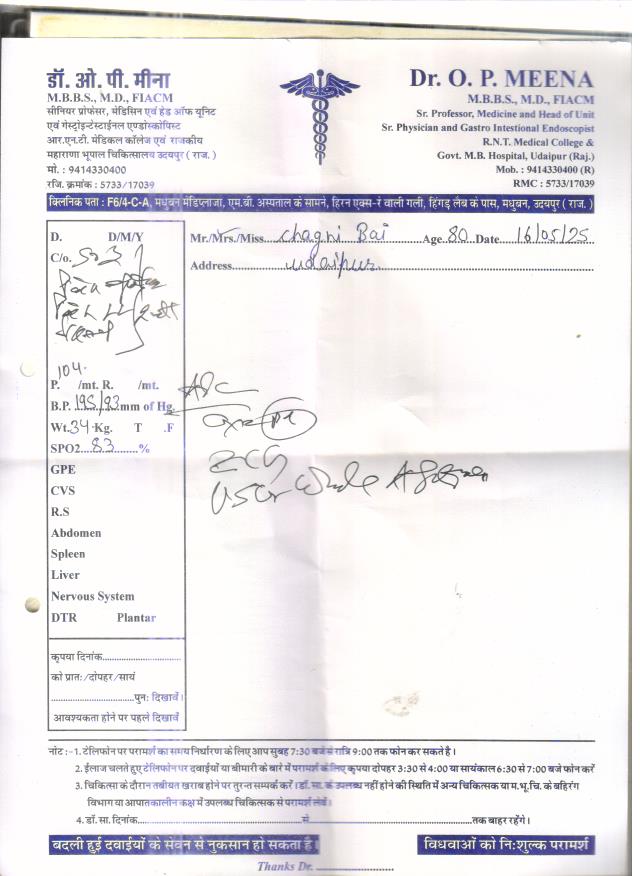 डॉ. ओ. पी. मीना
M.B.B.S., M.D., FIACM
सीनियर प्रोफेसर, मेडिसिन एवं हेड ऑफ यूनिट
एवं गेस्ट्रोइन्टेस्टाईनल एण्डोस्कोपिस्ट
आर.एन.टी. मेडिकल कॉलेज एवं राजकीय
महाराणा भूपाल चिकित्सालय उदयपुर ( राज. )
मो. : 9414330400
रजि. क्रमांक : 5733/17039
Dr. O. P. MEENA
M.B.B.S., M.D., FIACM
Sr. Professor, Medicine and Head of Unit
Sr. Physician and Gastro Intestional Endoscopist
R.N.T. Medical College &
Govt. M.B. Hospital, Udaipur (Raj.)
Mob. : 9414330400 (R)
RMC : 5733/17039
क्लिनिक पता : F6/4-C-A, मधुबन मेडिप्लाजा, एम.बी. अस्पताल के सामने, हिरन एक्स-रे वाली गली, हिंगड़ लैब के पास, मधुबन, उदयपुर ( राज. )
D. D/M/Y
C/o.
Mr./Mrs./Miss Chagni Bai Age 80 Date 16/05/25
Address udaipur
104.
P. /mt. R. /mt.
B.P. 195/93 mm of Hg.
Wt. 34 Kg. T .F
SPO2 83 %
GPE
CVS
R.S
Abdomen
Spleen
Liver
Nervous System
DTR Plantar
ECG
USG Whole
कृपया दिनांक
को प्रातः/दोपहर/सायं
पुनः दिखावें।
आवश्यकता होने पर पहले दिखावें
नोट :- 1. टेलिफोन पर परामर्श का समय निर्धारण के लिए आप सुबह 7:30 बजे से रात्रि 9:00 तक फोन कर सकते है।
2. ईलाज चलते हुए टेलिफोन पर दवाईयों या बीमारी के बारे में परामर्श के लिए कृपया दोपहर 3:30 से 4:00 या सायंकाल 6:30 से 7:00 बजे फोन करें
3. चिकित्सा के दौरान तबीयत खराब होने पर तुरन्त सम्पर्क करें। डॉ. सा. के उपलब्ध नहीं होने की स्थिति में अन्य चिकित्सक या म.भू.चि. के बहिरंग
विभाग या आपातकालीन कक्ष में उपलब्ध चिकित्सक से परामर्श लेवें।
4. डॉ. सा. दिनांक से तक बाहर रहेंगे।
बदली हुई दवाईयों के सेवन से नुकसान हो सकता है।
विधवाओं को निःशुल्क परामर्श
Thanks Dr.